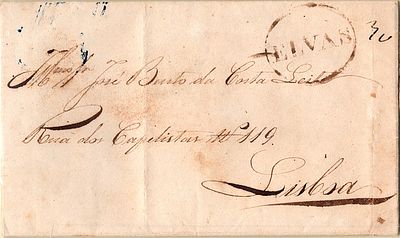 ELVAS
Illmo Sr José Bento da Costa Leite
Rua dos Capelistas Nº 119.
Lisboa